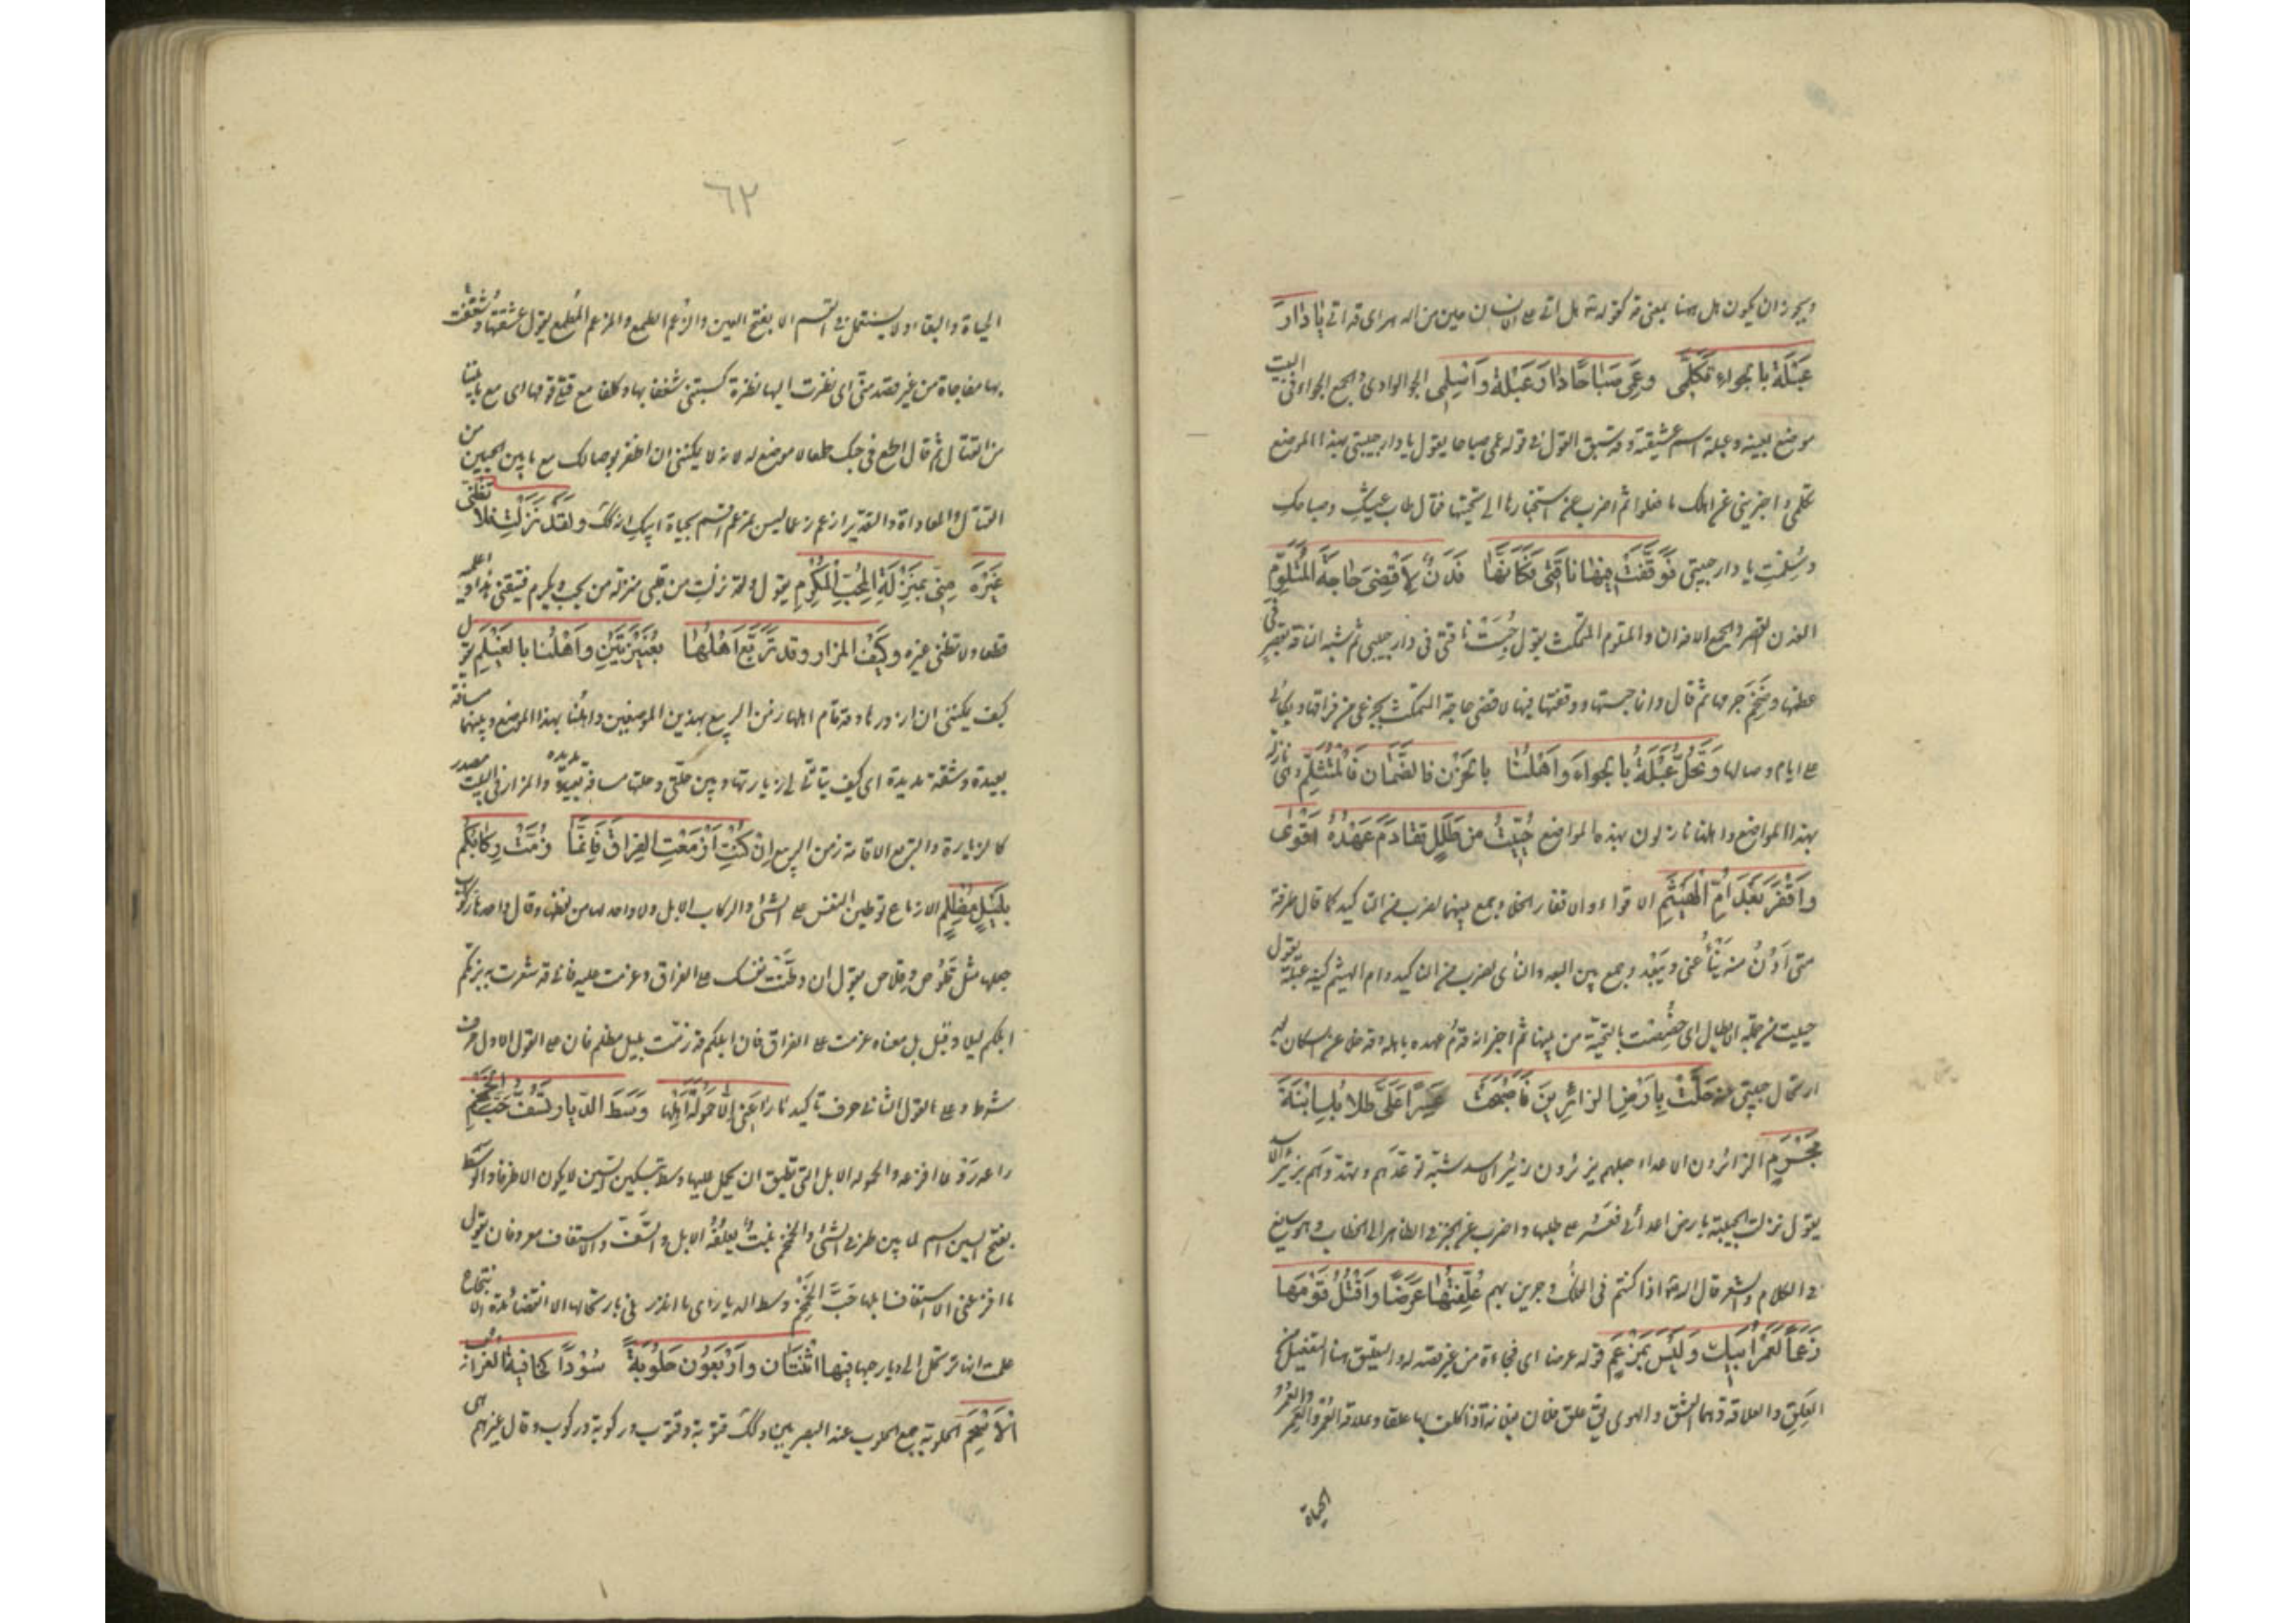 ويجوز ان يكون هل ههنا بمعنى قد كقوله تع هل اتى على الانسان حين من الدهر اى قد اتى يَا دَارَ
عَبْلَةَ بالجواء تَكَلَّمِى وعَمِى صَبَاحًا دَارَ عَبْلَةَ وَاسْلَمِى الجو الوادى والجمع الجواء فى البيت
موضع بعينه وعبلة اسم عشيقته وقد سبق القول فى قوله عمى صباحا يقول يا دار حبيبتى بهذا الموضع
تكلمى واخبرينى عن اهلك ما فعلوا ثم اضرب عن استخبارها الى تحيتها فقال طاب عيشكِ وصباحكِ
وسَلِمْتِ يا دار حبيبتى فَوَقَفْتُ فِيهَا نَاقَتِى فَكَانَّهَا فَدَنٌ لِاَقْضِىَ حَاجَةَ الْمُتَلَوِّمِ
الفدن القصر والجمع الافدان والمتلوم المتمكث يقول حَبَسْتُ ناقتى فى دار حبيبتى ثم شبه الناقة بقصر فى
عظمها وضخم جرمها ثم قال وانما حبستها ووقفتها فيها لاقضى حاجة المتمكث بجزعى من فراقها وبكائى
على ايام وصالها وَتَحُلُّ عَبْلَةُ بالجواءَ وَاَهْلُنَا بالحَزْن فالصَّمَّان فَالْمُتَثَلِّمِ وهى نازلة
بهذا المواضع واهلنا نازلون بهذه المواضع حُيِّيتَ من طَلَلٍ تَقَادَمَ عَهْدُهُ اَقْوَى
وَاَقْفَرَ بَعْدَ اُمِّ الْهَيْثَمِ الاقواء والاقفار الخلا وجمع بينهما لضرب من التاكيد كما قال طرفة
متى اَدْنُ منه يَنْأَ عنى ويَبْعُد وجمع بين البعد والنأى لضرب من التاكيد وام الهيثم كنية عبلة يقول
حييت من جملة الاطلال اى خصصت بالتحية من بينها ثم اخبر انه قدُم عهده باهله وقد خلا عن السكان بعد
ارتحال حبيبتى عنه حَلَّتْ بِاَرْضِ الزائِرِينَ فَاَصْبَحَتْ عَسِرًا عَلَىَّ طلابُكِ ابْنَةَ
مَخْرَمِ الزائرون الاعداء جعلهم يزئرون زئير الاسد شبّه توعدهم وتهددهم بزئير الاسد
يقول نزلت الحبيبة بارض اعدائى فعَسُر على طلبها واضرب عن الخبر فى الظاهر الى الخطاب وهو سائغ
فى الكلام والشعر قال الله تع اذا كنتم فى الفلك وجرين بهم عُلِّقْتُهَا عَرَضًا وَاَقْتُلُ قَوْمَهَا
زَعْمًا لَعَمْرُ اَبِيكَ وَلَيْسَ بِمَزْعَمِ قوله عرضا اى فجاءة من غير قصد له والتعليق هنا التفعيل من
العَلَق والعلاقة وهما العشق والهوى يق علق فلان بفلانة اذا كلف بها علقا وعلاقة العَمر والعُمر والعُمُر
الحياة
٦٢
الحياة والبقاء ولا يستعمل فى القسم الا بفتح العين والزعم الطمع والمزعم المطمع يقول عشقتها وشُغِفْت
بها مفاجاة من غير قصد منى اى نظرت اليها نظرة كسبتنى شغفا بها وكلفا مع قتلى قومها اى مع ما بيننا
من القتال ثم قال اطمع فى حبك طمعا لا موضع له لانه لا يمكننى ان اظفر بوصالك مع ما بين الحيين من
القتال والمعاداة والتقدير ازعم زعما ليس بمزعم اقسم بحياة ابيك انه كك وَلَقَدْ نَزَلْتِ فلا تَظُنِّى
غَيْرَهُ مِنِّى بِمَنْزِلَةِ الْمُحَبِّ الْمُكْرَمِ يقول وقد نزلتِ من قلبى منزلة من يحب ويكرم فتيقنى هذا واعلميه
قطعا ولا تظنى غيره وكَيْفَ المزار وقد تَرَبَّعَ اَهْلُهَا بِعُنَيْزَتَيْنِ وَاَهْلُنَا بالغَيْلَمِ يقول
كيف يمكننى ان ازورها وقد اقام اهلها زمن الربيع بهذين الموضعين واهلنا بهذا الموضع وبينهما مسافة
بعيدة ومشقة مديدة اى كيف يتأتى لى زيارتها وبين حلتى وحلتها مسافة بعيدة مديده والمزار فى البيت مصدر
كالزيارة والتربع الاقامة زمن الربيع اِنْ كُنْتِ اَزْمَعْتِ الفِرَاقَ فَاِنَّمَا زُمَّتْ رِكَابُكُمُ
بِلَيْلٍ مُظْلِمِ الازماع توطين النفس على الشئ والركاب الابل ولا واحد لها من لفظها وقال واحدها ركوب
جمعها مثل قَلُوص وقلاص يقول ان وطَّنْت نفسك على الفراق وعزمت عليه فانى قد شعرت به بزمكم
ابلكم ليلا وقيل بل معناه عزمت على الفراق فان ابلكم قد زمت بليل مظلم فان على القول الاول حرف
شرط وعلى القول الثانى حرف تاكيد مَا رَاعَنِى اِلَّا حَمُولَةُ اَهْلِهَا وَسَطَ الدّيار تَسُفُّ حَبَّ الخِمْخِمِ
راعه رَوْعًا افزعه والحمولة الابل التى تطيق ان يحمل عليها وسط بتسكين السين لا يكون الا ظرفا والوسَط
بفتح السين اسم لما بين طرفى الشئ والخمخم نبت يعلفه الابل والسَّف والاستفاف معروفان يقول
ما افزعنى الا استفاف ابلها حَبَّ الخِمْخِم وسط الديار اى ما انذرنى بارتحالها الا انقضاء مدة الانتجاع
علمت انها ترتحل الى ديار حيها فِيهَا اثْنَتَان وَاَرْبَعُوْن حَلُوْبَةً سُوْدًا كَخَافِيَةِ الغُرَاب
الْاَسْحَمِ الحلوبة جمع الحلوب عند البصريين وكك قتوبة وقتوب وركوبة وركوب وقال غيرهم هى